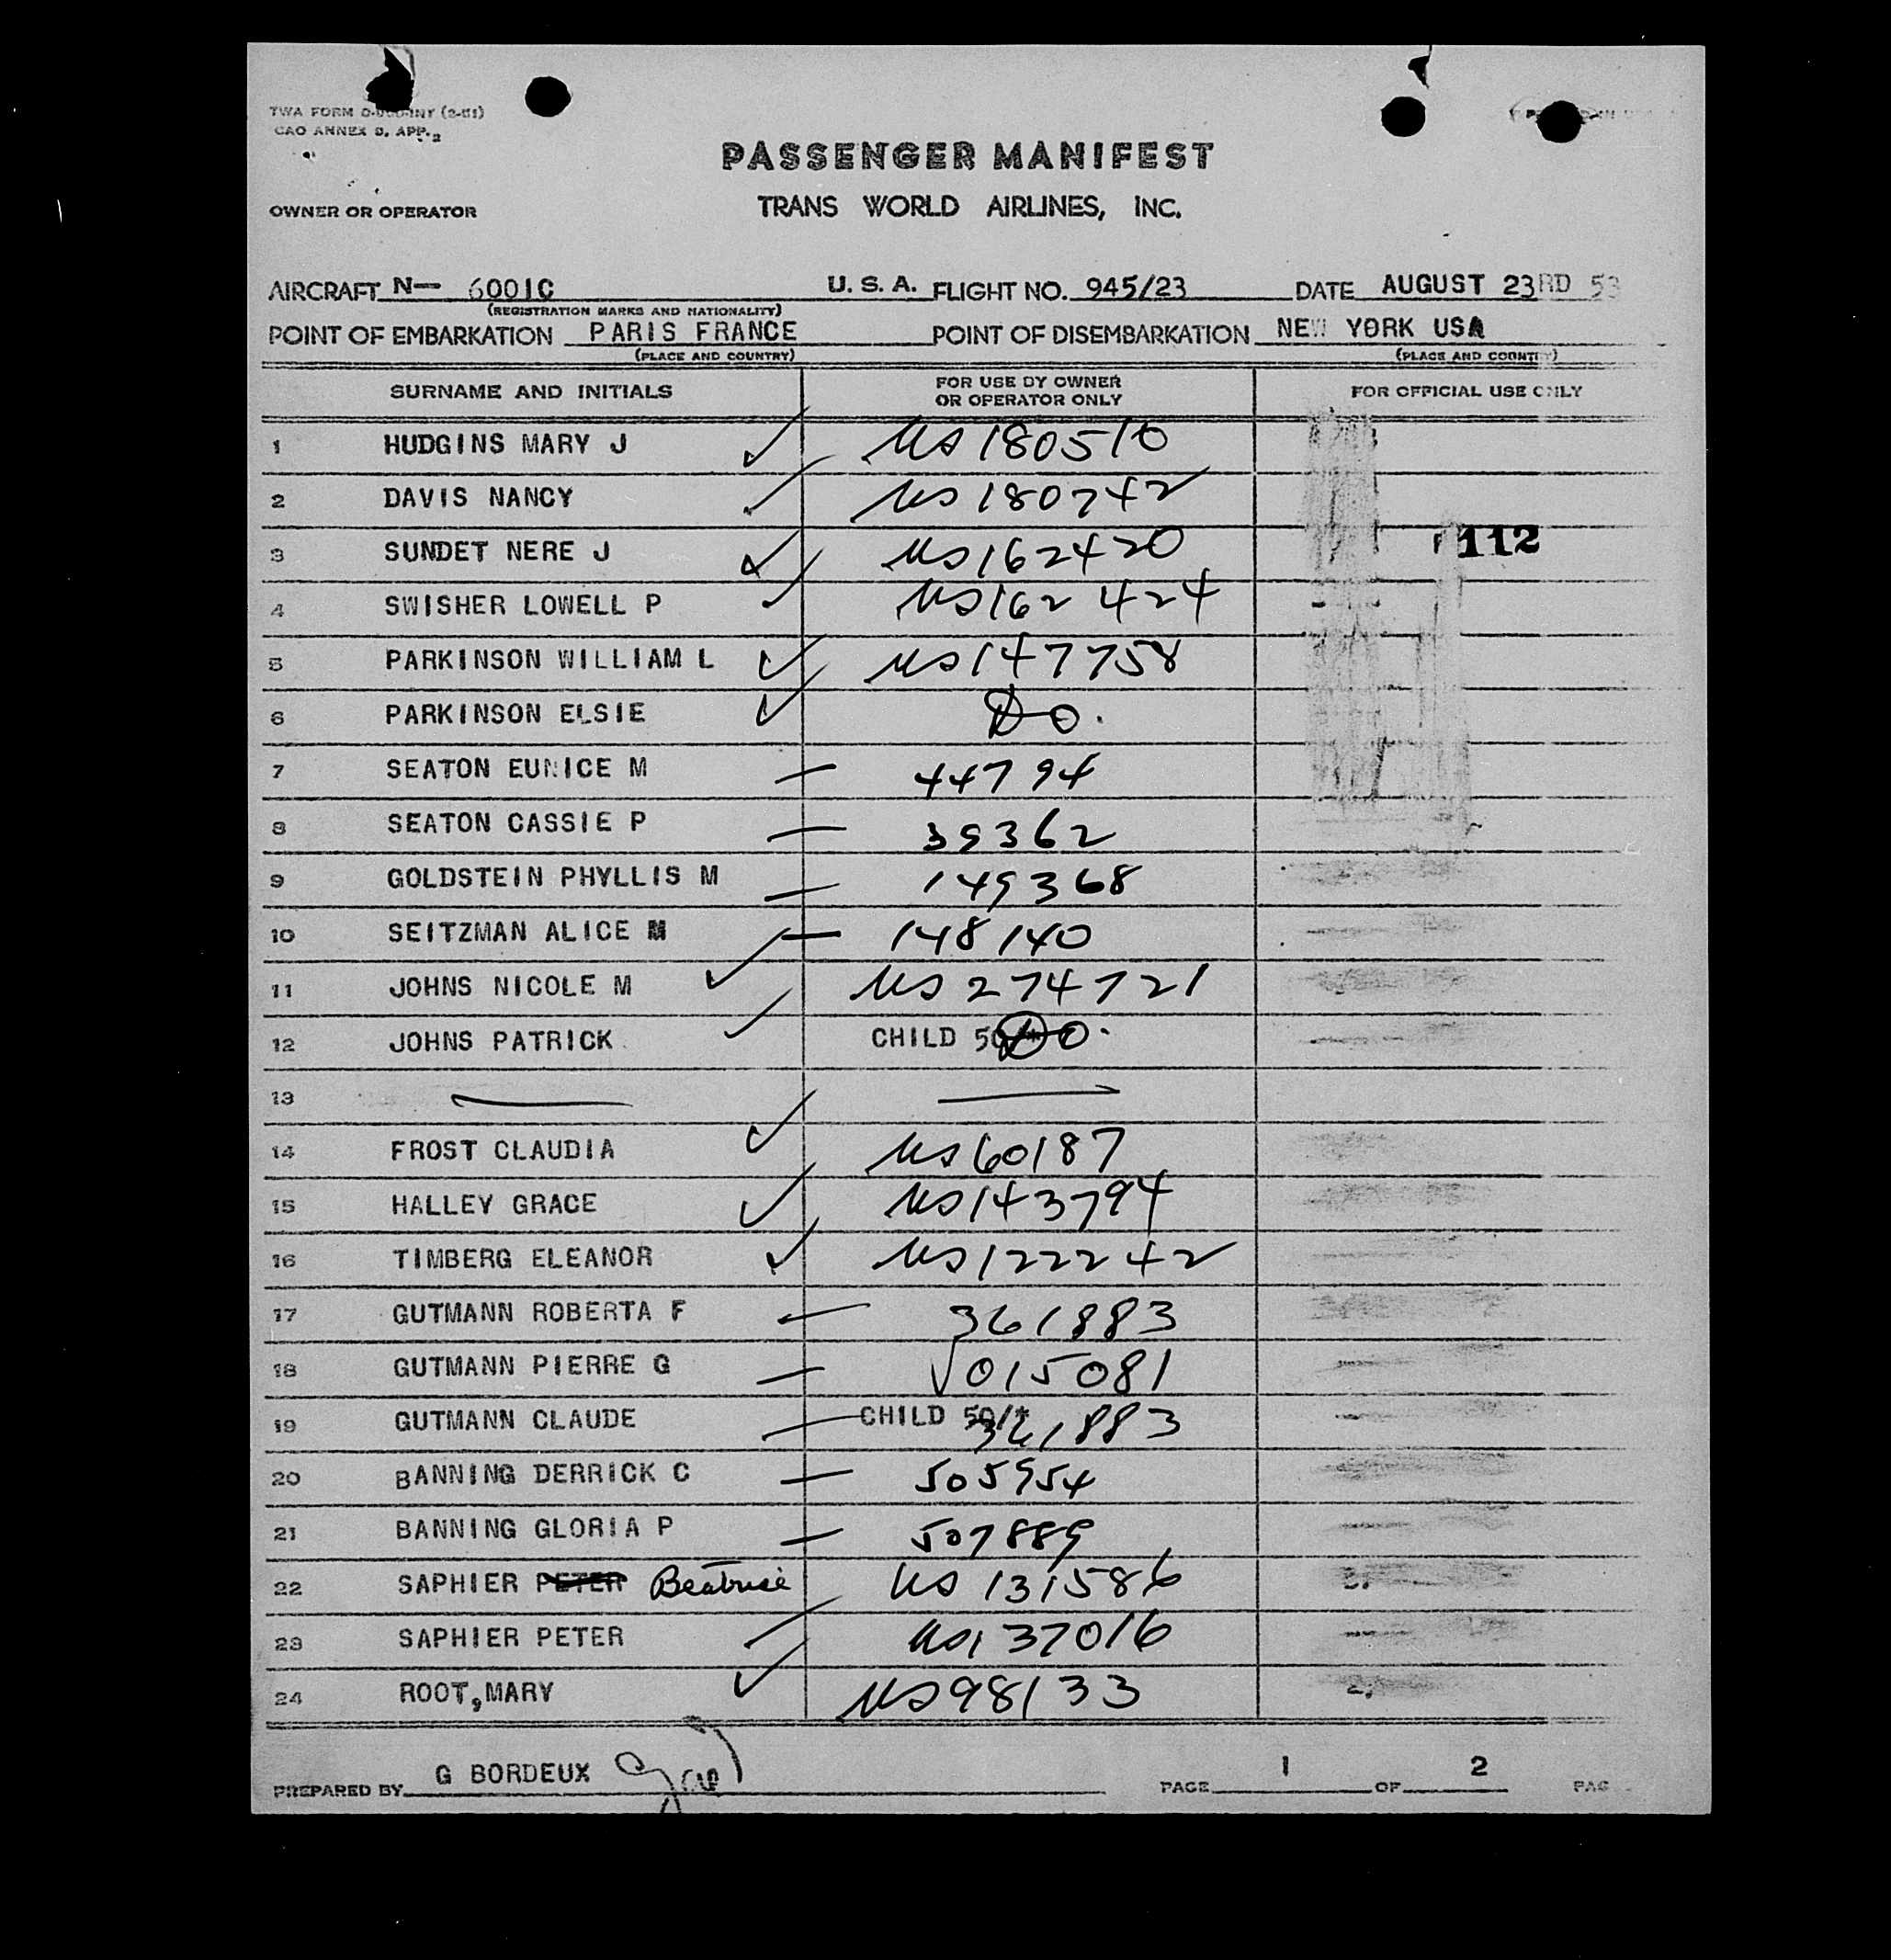 TWA FORM
CAO ANNEX 9, APP. 2
PASSENGER MANIFEST
OWNER OR OPERATOR TRANS WORLD AIRLINES, INC.
AIRCRAFT N— 6001C U. S. A. FLIGHT NO. 945/23 DATE AUGUST 23RD 53
(REGISTRATION MARKS AND NATIONALITY)
POINT OF EMBARKATION PARIS FRANCE POINT OF DISEMBARKATION NEW YORK USA
(PLACE AND COUNTRY) (PLACE AND COUNTRY)
SURNAME AND INITIALS FOR USE BY OWNER OR OPERATOR ONLY FOR OFFICIAL USE ONLY
1 HUDGINS MARY J ✓ US 180510
2 DAVIS NANCY ✓ US 180742
3 SUNDET NERE J ✓ US 162420
112
4 SWISHER LOWELL P ✓ US 162424
5 PARKINSON WILLIAM L ✓ US 147758
6 PARKINSON ELSIE ✓ DO.
7 SEATON EUNICE M — 44794
8 SEATON CASSIE P — 39362
9 GOLDSTEIN PHYLLIS M — 149368
10 SEITZMAN ALICE M — 148140
11 JOHNS NICOLE M ✓ US 274721
12 JOHNS PATRICK ✓ CHILD 50/* DO.
13 — —
14 FROST CLAUDIA ✓ US 60187
15 HALLEY GRACE ✓ US 143794
16 TIMBERG ELEANOR ✓ US 122242
17 GUTMANN ROBERTA F — 361883
18 GUTMANN PIERRE G — √015081
19 GUTMANN CLAUDE — CHILD 50/* 361883
20 BANNING DERRICK C — 505954
21 BANNING GLORIA P — 507889
22 SAPHIER PETER Beatrice US 131586
23 SAPHIER PETER ✓ US 137016
24 ROOT,MARY ✓ US 98133
PREPARED BY G BORDEUX PAGE 1 OF 2 PAG